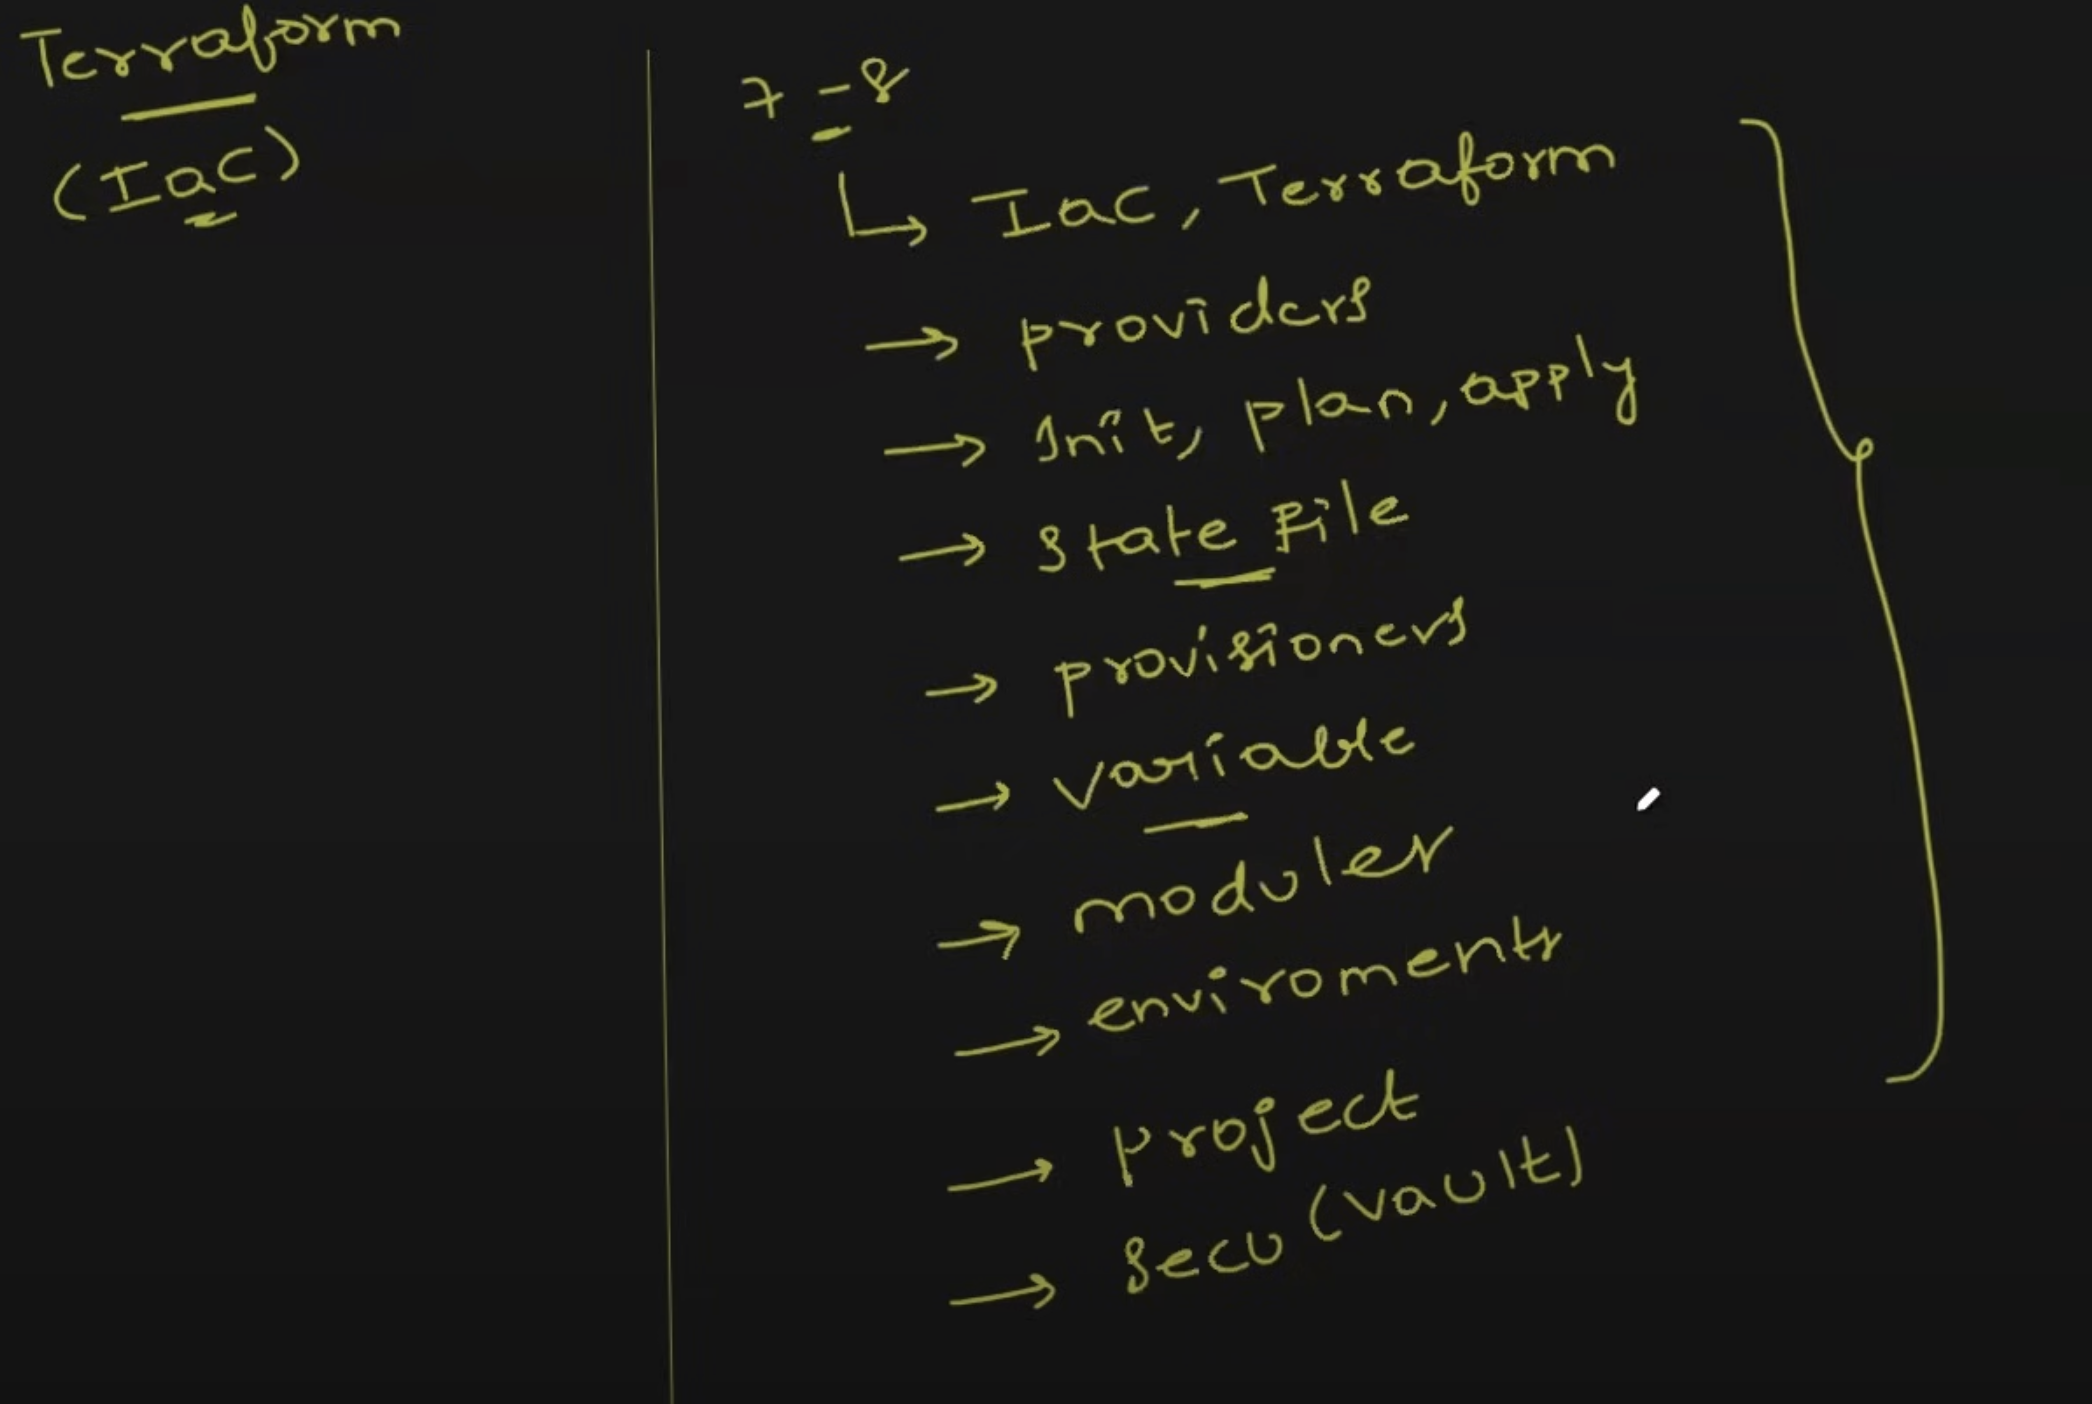 Terraform
(IaC)
7-8
IaC, Terraform
providers
Init, plan, apply
State File
provisioners
variable
modules
enviroments
project
Secu (vault)